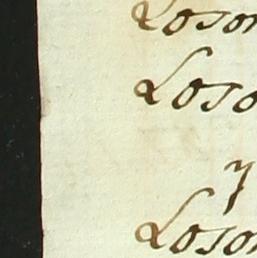 Loson
Loso
Loson